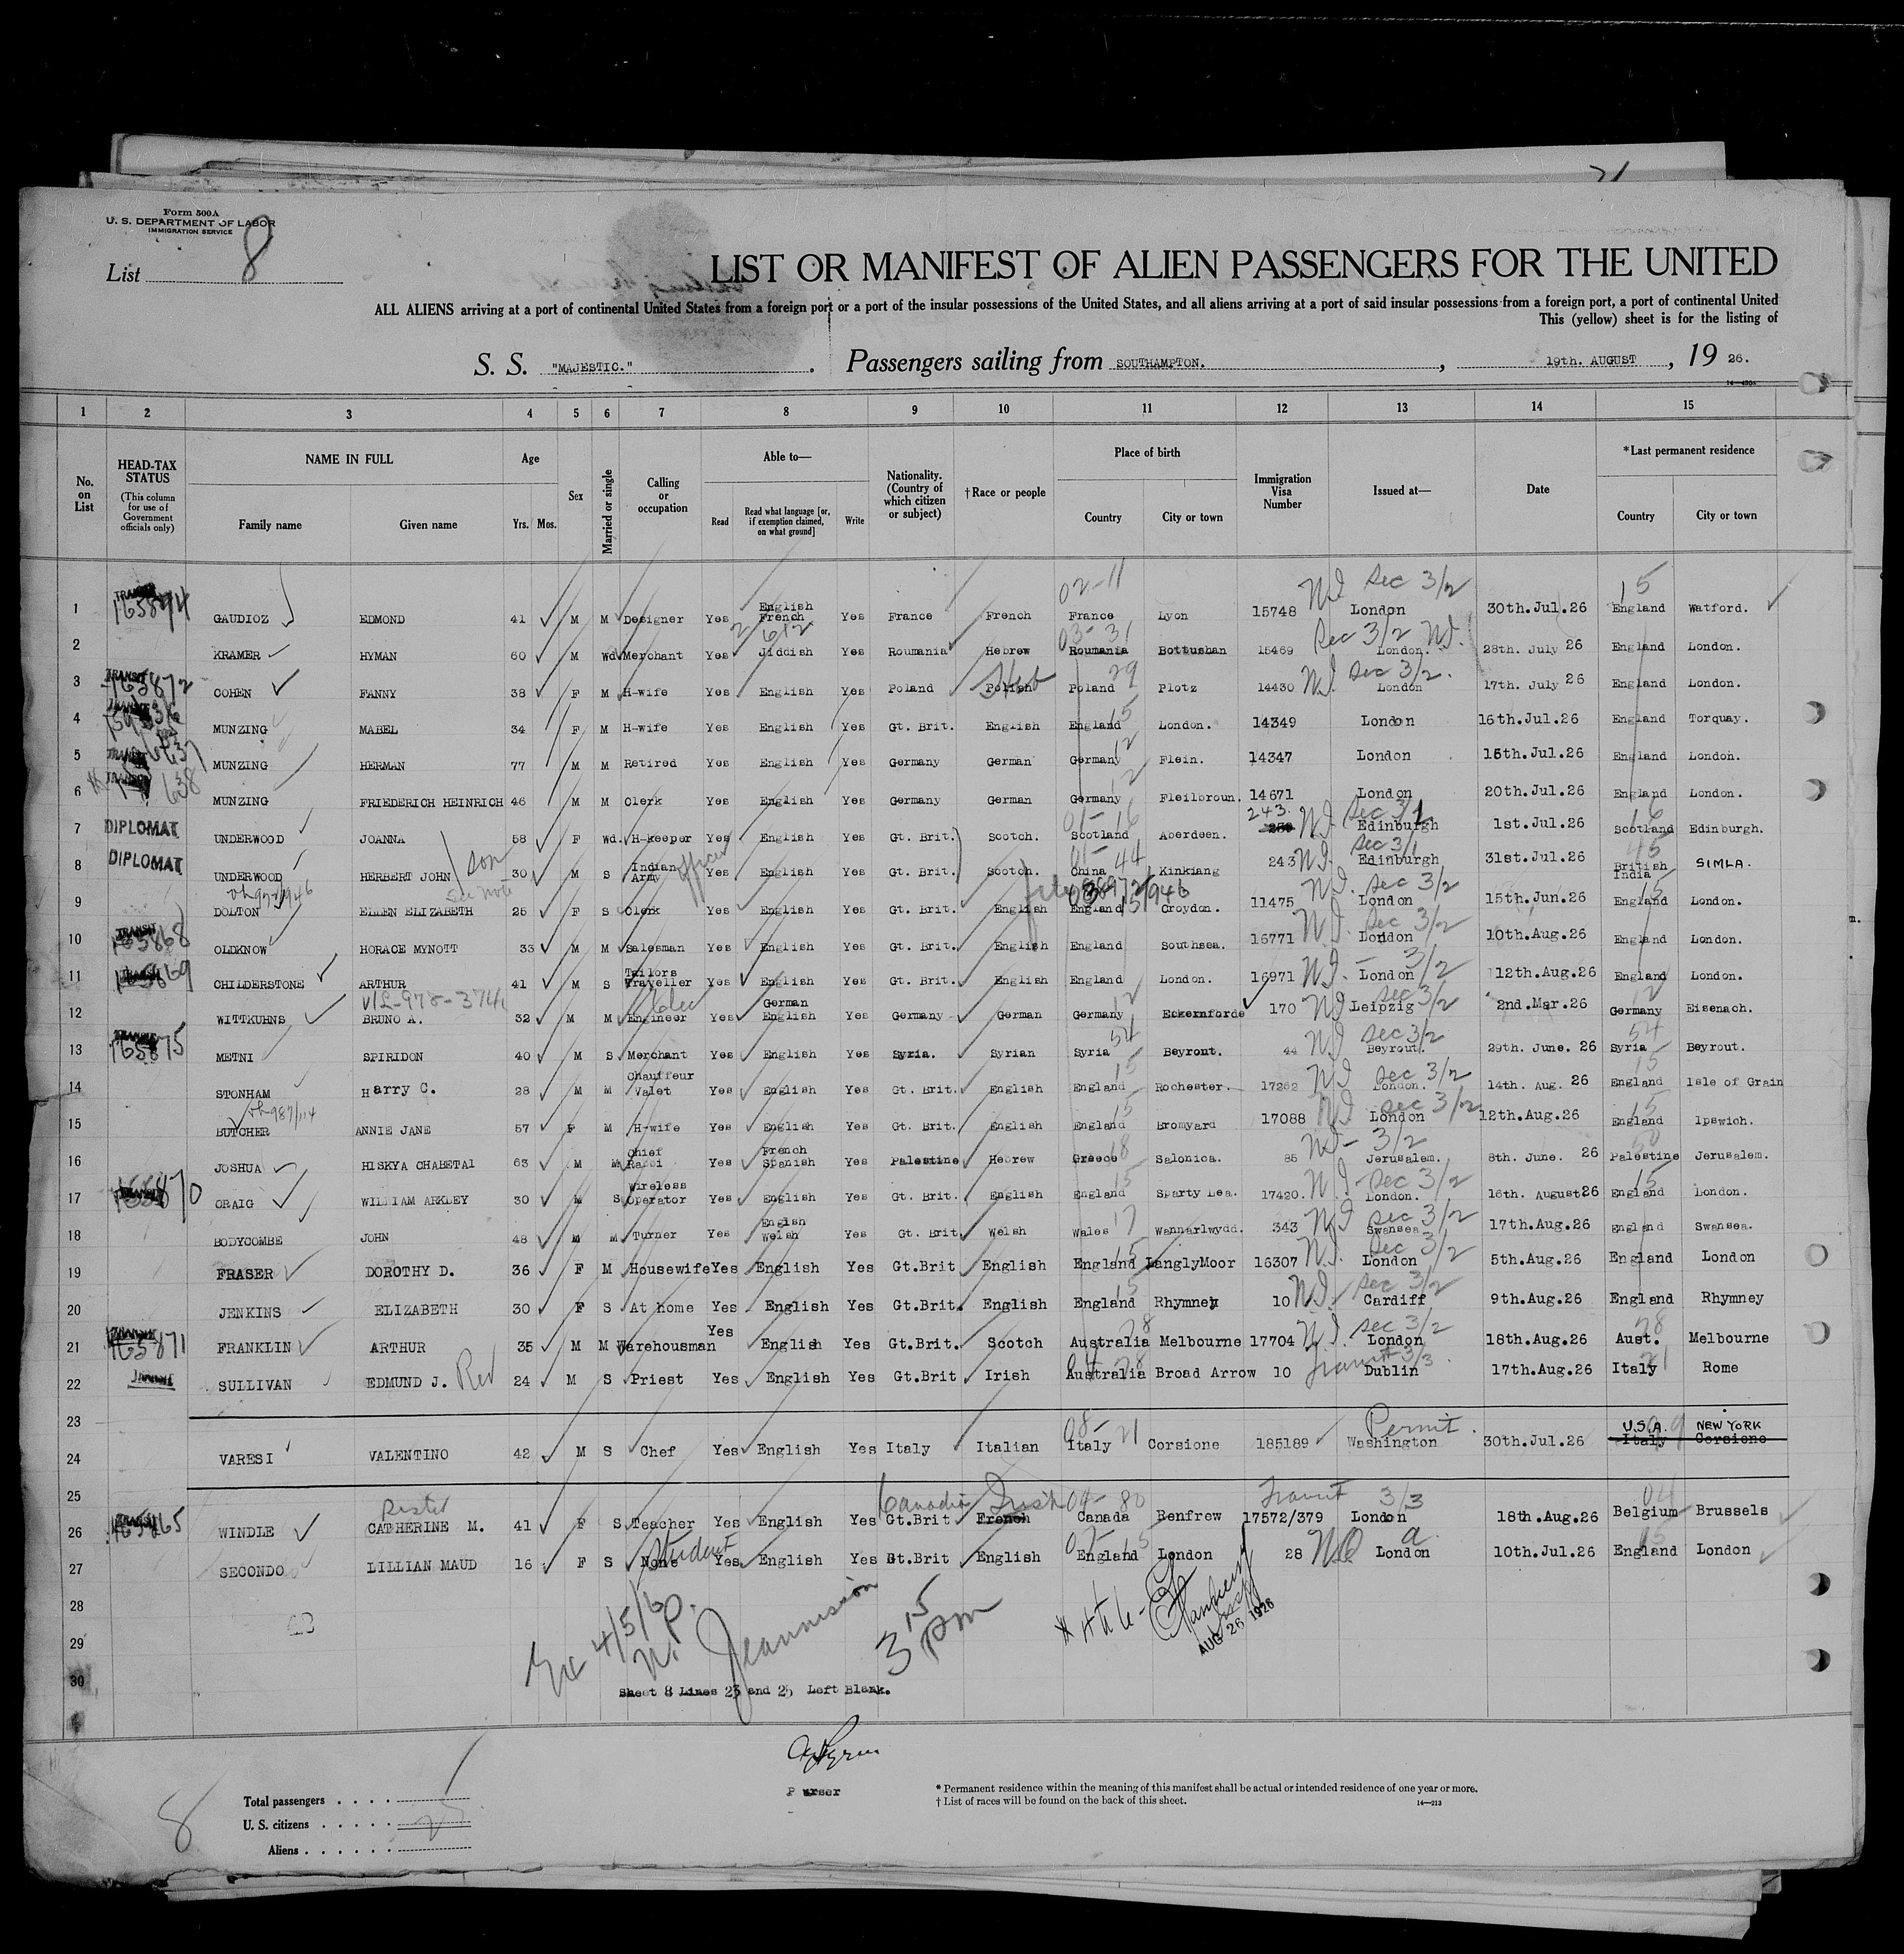 Form 500A
U. S. DEPARTMENT OF LABOR
IMMIGRATION SERVICE
List 8
LIST OR MANIFEST OF ALIEN PASSENGERS FOR THE UNITED
ALL ALIENS arriving at a port of continental United States from a foreign port or a port of the insular possessions of the United States, and all aliens arriving at a port of said insular possessions from a foreign port, a port of continental United
This (yellow) sheet is for the listing of
S. S. "MAJESTIC." Passengers sailing from SOUTHAMPTON. , 19th. AUGUST , 19 26.
1 2 3 4 5 6 7 8 9 10 11 12 13 14 15
No. on List HEAD-TAX STATUS (This column for use of Government officials only) NAME IN FULL Family name Given name Age Yrs. Mos. Sex Married or single Calling or occupation Able to— Read Read what language [or, if exemption claimed, on what ground] Write Nationality. (Country of which citizen or subject) †Race or people Place of birth Country City or town Immigration Visa Number Issued at— Date *Last permanent residence Country City or town
1 165874 GAUDIOZ EDMOND 41 M M Designer Yes English French Yes France French 02-11 France Lyon 15748 N.I. Sec 3/2 London 30th.Jul.26 15 England Watford.
2 KRAMER HYMAN 60 M Wd Merchant Yes Jiddish Yes Roumania Hebrew 03-31 Roumania Bottushan 15469 Sec 3/2 London. 28th. July 26 England London.
3 TRANSIT 165872 COHEN FANNY 38 F M H-wife Yes English Yes Poland Polish Heb Poland 29 Plotz 14430 Sec 3/2. London 17th. July 26 England London.
4 MUNZING MABEL 34 F M H-wife Yes English Yes Gt. Brit. English England 15 London. 14349 London 16th.Jul.26 England Torquay.
5 MUNZING HERMAN 77 M M Retired Yes English Yes Germany German Germany 12 Flein. 14347 London 15th.Jul.26 England London.
6 MUNZING FRIEDERICH HEINRICH 46 M M Clerk Yes English Yes Germany German Germany 12 Fleilbroun. 14671 London 20th.Jul.26 England London.
7 DIPLOMAT UNDERWOOD JOANNA 58 F Wd. H-keeper Yes English Yes Gt. Brit. Scotch. 01-16 Scotland Aberdeen. 243. N.I. Sec 3/1 Edinburgh 1st.Jul.26 16 Scotland Edinburgh.
8 DIPLOMAT UNDERWOOD HERBERT JOHN son 30 M S Indian Army officer Yes English Yes Gt. Brit. Scotch. 01-44 China Kinkiang 243 N.I. Sec 3/1 Edinburgh 31st.Jul.26 45 British India SIMLA.
9 DOLTON ELLEN ELIZABETH See note 25 F S Clerk Yes English Yes Gt. Brit. English England 15 Croydon. 11475 N.I. Sec 3/2 London 15th.Jun.26 15 England London.
10 TRANSIT 165868 OLDKNOW HORACE MYNOTT 33 M M Salesman Yes English Yes Gt. Brit. English England Southsea. 16771 N.I. Sec 3/2 London 10th.Aug.26 England London.
11 165869 CHILDERSTONE ARTHUR 41 M S Tailors Traveller Yes English Yes Gt. Brit. English England London. 16971 N.I. - 3/2 London 12th.Aug.26 England London.
12 WITTKUHNS BRUNO A. 32 M M Elec Engineer Yes German English Yes Germany German Germany 12 Eckernforde 170 N.I. Sec 3/2 Leipzig 2nd.Mar.26 12 Germany Eisenach.
13 TRANSIT 165875 METNI SPIRIDON 40 M S Merchant Yes English Yes Syria. Syrian 54 Syria Beyrout. 44 N.I. Sec 3/2 Beyrout. 29th. June. 26 54 Syria Beyrout.
14 STONHAM Harry C. 28 M M Chauffeur Valet Yes English Yes Gt. Brit. English 15 England Rochester. 17262 N.I. Sec 3/2 London. 14th. Aug. 26 15 England Isle of Grain
15 BUTCHER ANNIE JANE 57 F M H-wife Yes English Yes Gt. Brit. English 15 England Bromyard 17088 N.I. Sec 3/2 London 12th.Aug.26 15 England Ipswich.
16 JOSHUA HISKYA CHABETAI 63 M M Chief Rabbi Yes French Spanish Yes Palestine Hebrew Greece 18 Salonica. 85 N.I. - 3/2 Jerusalem. 8th. June. 26 50 Palestine Jerusalem.
17 165870 ORAIG WILLIAM ARKLEY 30 M S Wireless Operator Yes English Yes Gt. Brit. English England 15 Sparty Lea. 17420. N.I. Sec 3/2 London. 16th. August 26 15 England London.
18 BODYCOMBE JOHN 48 M M Turner Yes Englsh Welsh Yes Gt. Brit Welsh Wales 17 Wannarlwydd. 343 N.I. Sec 3/2 Swansea 17th.Aug.26 England Swansea.
19 FRASER DOROTHY D. 36 F M Housewife Yes English Yes Gt.Brit English England 15 LanglyMoor 16307 N.I. Sec 3/2 London 5th.Aug.26 England London
20 JENKINS ELIZABETH 30 F S At home Yes English Yes Gt.Brit. English England 15 Rhymney 10 N.I. Sec 3/2 Cardiff 9th.Aug.26 England Rhymney
21 165871 FRANKLIN ARTHUR 35 M M Warehousman Yes English Yes Gt.Brit. Scotch Australia 28 Melbourne 17704 N.I. Sec 3/2 London 18th.Aug.26 28 Aust. Melbourne
22 SULLIVAN EDMUND J. Rev 24 M S Priest Yes English Yes Gt.Brit Irish Australia 28 Broad Arrow 10 Transit 3/3. Dublin 17th.Aug.26 Italy 21 Rome
23
24 VARESI VALENTINO 42 M S Chef Yes English Yes Italy Italian 08-21 Italy Corsione 185189 Permit. Washington 30th.Jul.26 U.S.A. Italy NEW YORK Corsione
25
26 WINDLE Sister CATHERINE M. 41 F S Teacher Yes English Yes Canadia Gt.Brit Irish French 04-80 Canada Renfrew 17572/379 Transit 3/3 London 18th.Aug.26 04 Belgium Brussels
27 SECONDO LILLIAN MAUD 16 F S None Student Yes English Yes Gt.Brit English England 15 London 28 London 10th.Jul.26 15 England London
28
29
30
3 15 PM
AUG 26 1926
Sheet 8 Lines 23 and 25 Left Blank.
Purser
Total passengers
U. S. citizens
Aliens
8
* Permanent residence within the meaning of this manifest shall be actual or intended residence of one year or more.
† List of races will be found on the back of this sheet.
14—213